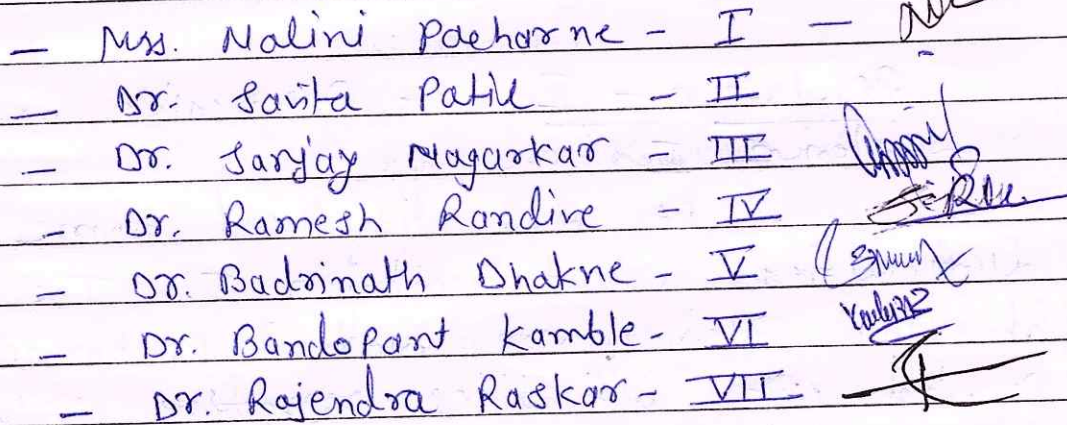 - Mrs. Nalini Pacharne - I -
- Dr. Savita Patil - II
- Dr. Sanjay Nagarkar - III
- Dr. Ramesh Randive - IV
- Dr. Badrinath Dhakne - V
- Dr. Bandopant Kamble - VI
- Dr. Rajendra Raskar - VII -